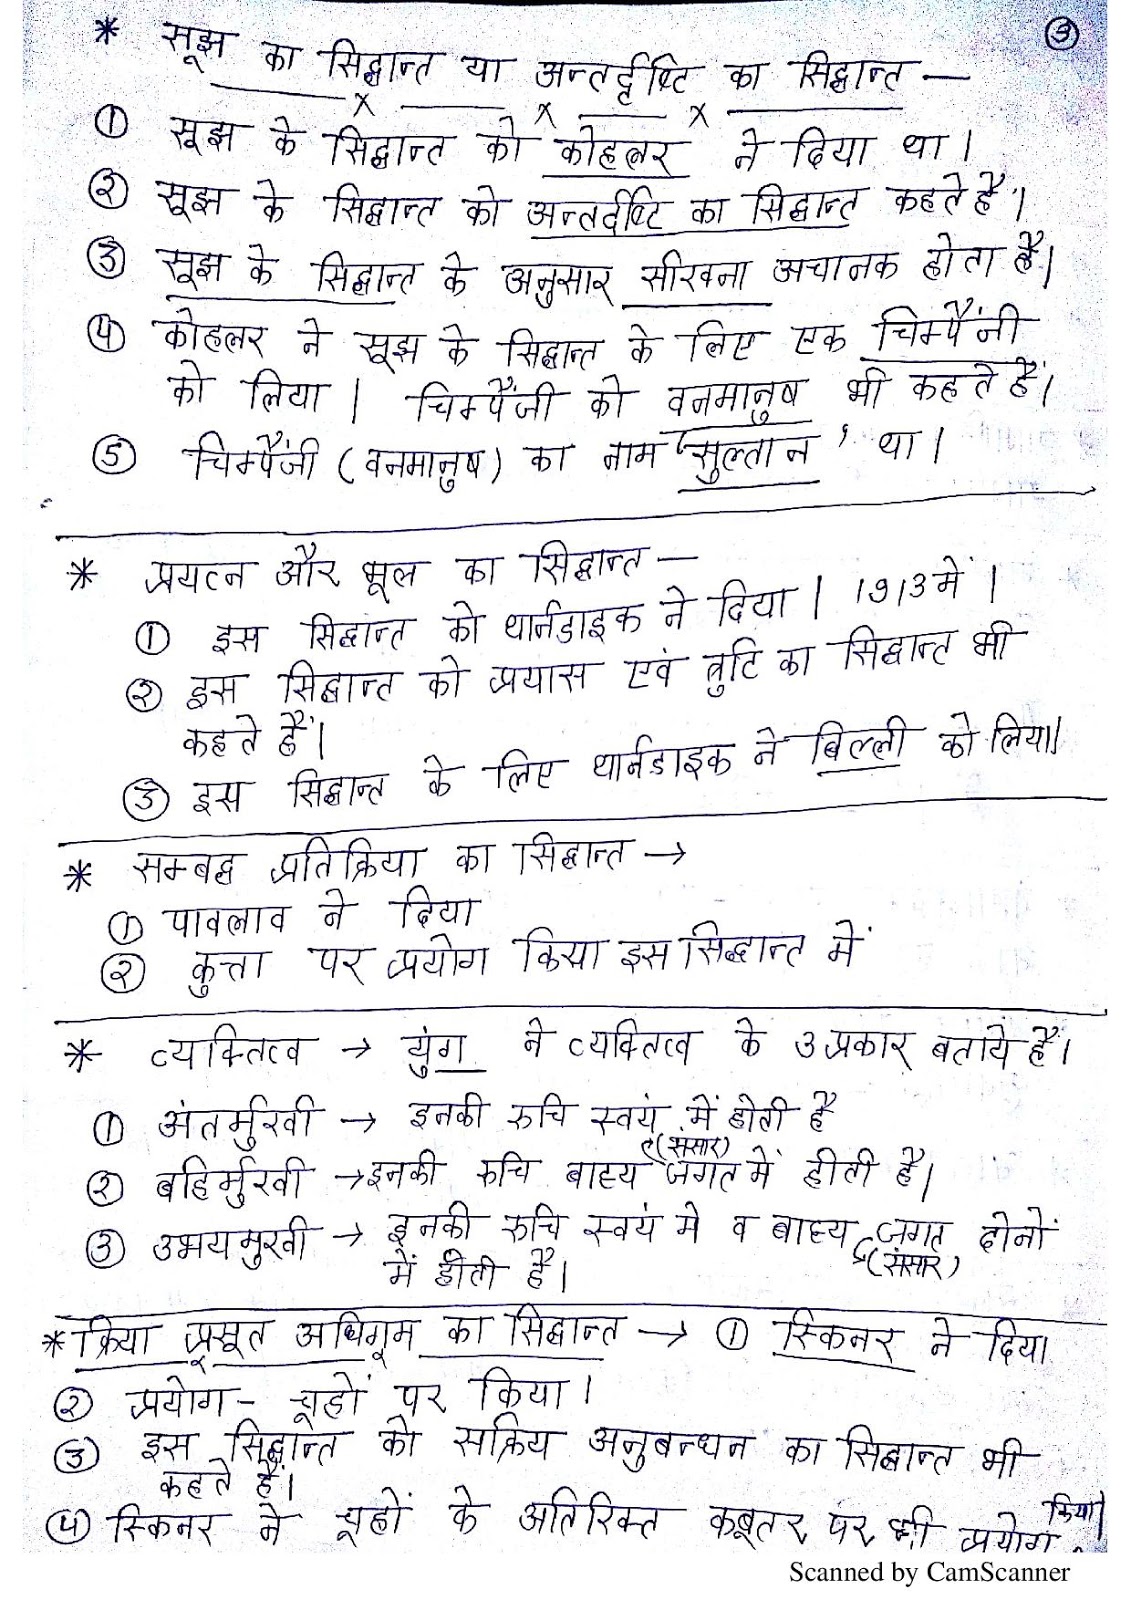 ③
* सूझ का सिद्धान्त या अन्तर्दृष्टि का सिद्धान्त —
① सूझ के सिद्धान्त को कोहलर ने दिया था।
② सूझ के सिद्धान्त को अन्तर्दष्टि का सिद्धान्त कहते हैं।
③ सूझ के सिद्धान्त के अनुसार सीखना अचानक होता है।
④ कोहलर ने सूझ के सिद्धान्त के लिए एक चिम्पैंनी
को लिया। चिम्पैंजी को वनमानुष भी कहते हैं।
⑤ चिम्पैंजी (वनमानुष) का नाम 'सुल्तान' था।
* प्रयत्न और भूल का सिद्धान्त —
① इस सिद्धान्त को थार्नडाइक ने दिया। 1913 में।
② इस सिद्धान्त को प्रयास एवं त्रुटि का सिद्धान्त भी
कहते हैं।
③ इस सिद्धान्त के लिए थार्नडाइक ने बिल्ली को लिया।
* सम्बद्ध प्रतिक्रिया का सिद्धान्त →
① पावलाव ने दिया
② कुत्ता पर प्रयोग किया इस सिद्धान्त में
* व्यक्तित्व → युंग ने व्यक्तित्व के 3 प्रकार बताये हैं।
① अंतर्मुखी → इनकी रुचि स्वयं में होती है
(संसार)
② बहिर्मुखी → इनकी रुचि बाह्य जगत में होती है।
③ उभयमुखी → इनकी रुचि स्वयं मे व बाह्य जगत दोनों
में होती है। (संसार)
* क्रिया प्रसूत अधिगम का सिद्धान्त → ① स्किनर ने दिया
② प्रयोग - चूहों पर किया।
③ इस सिद्धान्त को सक्रिय अनुबन्धन का सिद्धान्त भी
कहते हैं।
④ स्किनर ने चूहों के अतिरिक्त कबूतर पर भी प्रयोग किया।
Scanned by CamScanner